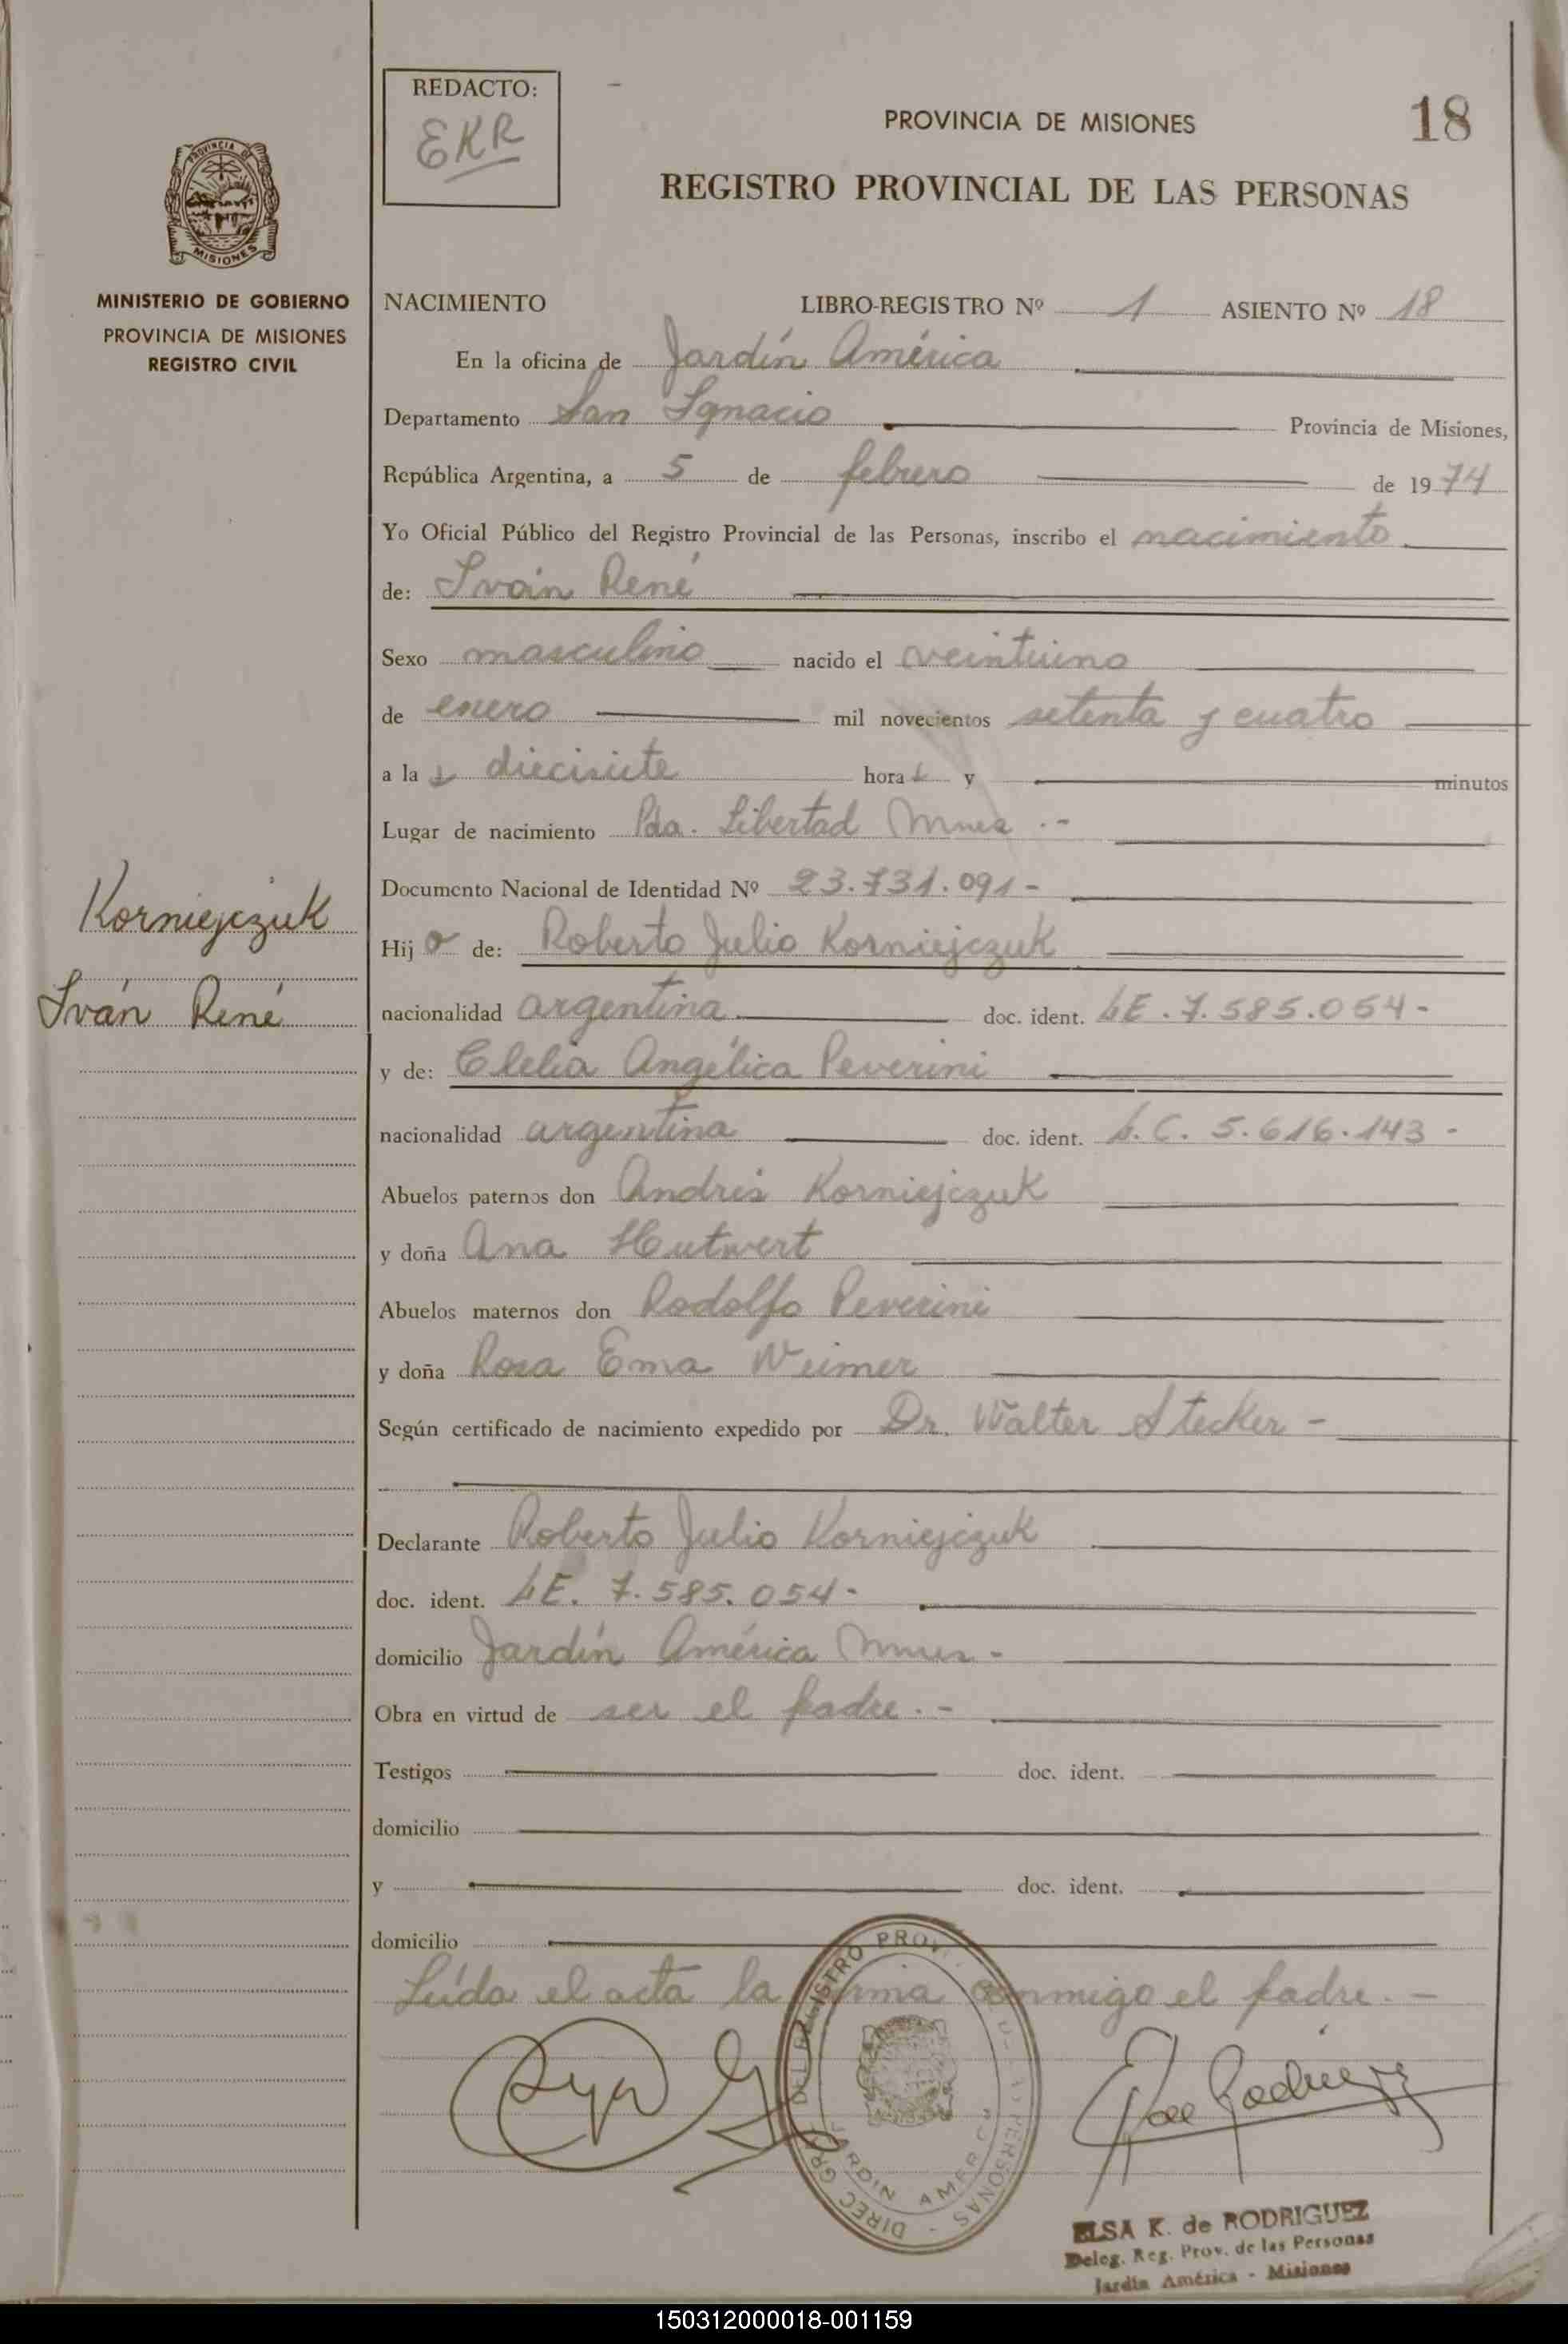 REDACTO:
EKR
PROVINCIA DE MISIONES
18
REGISTRO PROVINCIAL DE LAS PERSONAS
PROVINCIA DE
MISIONES
MINISTERIO DE GOBIERNO
PROVINCIA DE MISIONES
REGISTRO CIVIL
NACIMIENTO LIBRO-REGISTRO Nº 1 ASIENTO Nº 18
En la oficina de Jardín América
Departamento San Ignacio Provincia de Misiones,
República Argentina, a 5 de febrero de 1974
Yo Oficial Público del Registro Provincial de las Personas, inscribo el nacimiento
de: Iván René
Sexo masculino nacido el veintiuno
de enero mil novecientos setenta y cuatro
a las diecisiete horas y minutos
Lugar de nacimiento Pda. Libertad Mnes .-
Documento Nacional de Identidad Nº 23.731.091-
Korniejczuk
Iván René
Hijo de: Roberto Julio Korniejczuk
nacionalidad argentina doc. ident. LE. 7.585.054-
y de: Clelia Angélica Peverini
nacionalidad argentina doc. ident. L.C. 5.616.143-
Abuelos paternos don Andrés Korniejczuk
y doña Ana Hutwert
Abuelos maternos don Rodolfo Peverini
y doña Rosa Ema Weimer
Según certificado de nacimiento expedido por Dr. Walter Stecker -
Declarante Roberto Julio Korniejczuk
doc. ident. LE. 7.585.054-
domicilio Jardín América Mnes-
Obra en virtud de ser el padre.-
Testigos doc. ident.
domicilio
y doc. ident.
domicilio
Leída el acta la firma conmigo el padre.-
DIREC GRAL DEL REGISTRO PROV. DE LAS PERSONAS -
JARDIN AMERICA
ELSA K. de RODRIGUEZ
Deleg. Reg. Prov. de las Personas
Jardín América - Misiones
150312000018-001159